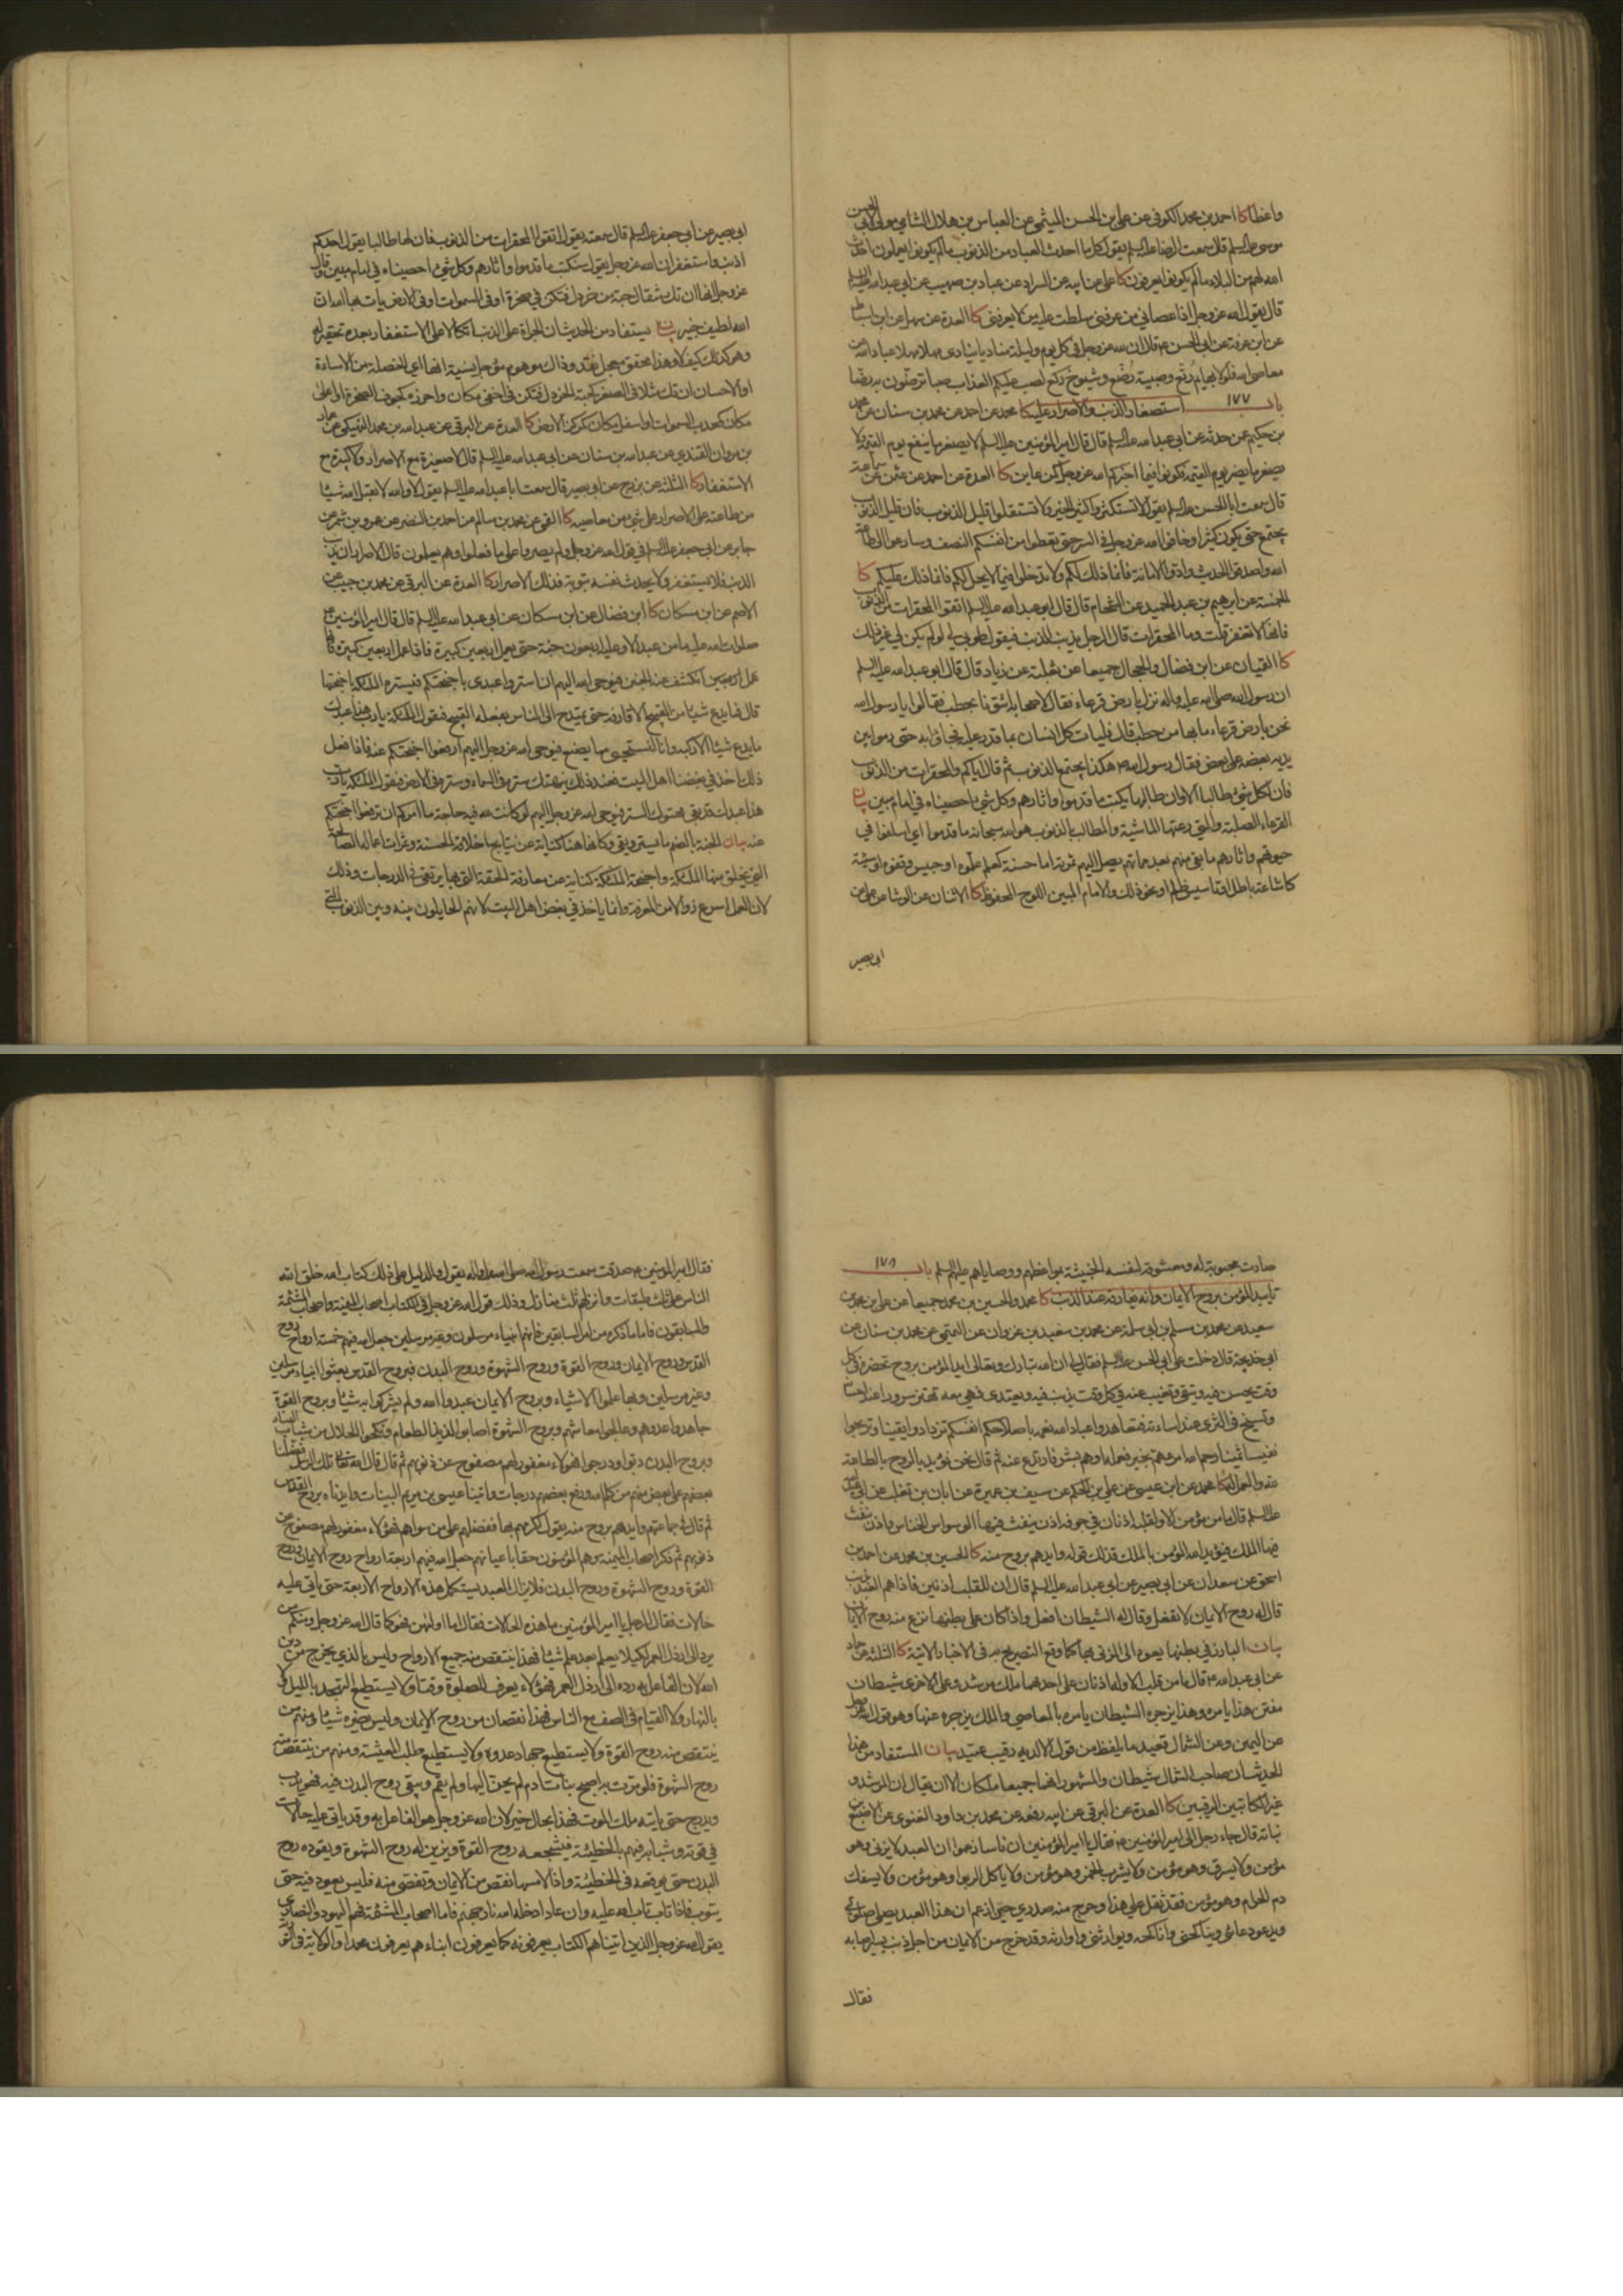 واعظا كا احمد بن محمد الكوفي عن علي بن الحسن الميثمي عن العباس بن هلال الشامي مولى لابي الحسن
موسى عليه السلم قال سمعت الرضا عليه السلم يقول كل ما احدث العباد من الذنوب ما لم يكونوا يعملون احدث
الله لهم من البلاء ما لم يكونوا يعرفون كا علي عن ابيه عن السراد عن عباد بن صهيب عن ابي عبد الله عليه السلم
قال يقول الله عز وجل اذا عصاني من عرفني سلطت عليه من لا يعرفني كا العدة عن سهل عن ابن اسباط
عن ابن عرفة عن ابي الحسن ع قال ان لله عز وجل في كل يوم وليلة مناديا ينادي مهلا مهلا عباد الله عن
معاصي الله فلولا بهايم رتع وصبية رضع وشيوخ ركع لصب عليكم العذاب صبا ترضون به رضا
باب ١٧٧ استصغار الذنب والاصرار عليه كا محمد عن احمد عن محمد بن سنان عن محمد
بن حكيم عمن حدثه عن ابي عبد الله عليه السلم قال قال امير المؤمنين عليه السلم لا يصغر ما ينفع يوم القيمة ولا
يصغر ما يضر يوم القيمة فكونوا فيما اخبركم الله عز وجل كمن عاين كا العدة عن احمد عن عثمن عن سماعة
قال سمعت ابا الحسن عليه السلم يقول لا تستكثروا كثير الخير ولا تستقلوا قليل الذنوب فان قليل الذنوب
يجتمع حتى يكون كثيرا وخافوا الله عز وجل في السر حتى تعطوا من انفسكم النصف وسارعوا الى طاعة
الله واصدقوا الحديث وادوا الامانة فانما ذلك لكم ولا تدخلوا فيما لا يحل لكم فانما ذلك عليكم كا
الخمسة عن ابرهيم بن عبد الحميد عن الشحام قال قال ابو عبد الله عليه السلم اتقوا المحقرات من الذنوب
فانها لا تغفر قلت وما المحقرات قال الرجل يذنب الذنب فيقول طوبى لي لو لم يكن لي غير ذلك
كا القميان عن ابن فضال والحجال جميعا عن ثعلبة عن زياد قال قال ابو عبد الله عليه السلم
ان رسول الله صلى الله عليه واله نزل بارض قرعاء فقال لاصحابه ائتونا بحطب فقالوا يا رسول الله
نحن بارض قرعاء ما بها من حطب قال فليات كل انسان بما قدر عليه فجاؤا به حتى رموا بين
يديه بعضه على بعض فقال رسول الله ص هكذا يجتمع الذنوب ثم قال اياكم والمحقرات من الذنوب
فان لكل شيء طالبا الا وان طالبها يكتب ما قدموا واثارهم وكل شيء احصيناه في امام مبين بيان
القرعاء الصلبة والتي رعتها الماشية والمطالب بالذنوب هو الله سبحانه ما قدموا اي اسلفوا في
حيوتهم واثارهم ما بقي منهم بعد مماتهم يصل اليهم ثمرته اما حسنة كعلم علموه او حبيس وقفوه او سيئة
كاشاعة باطل او تاسيس ظلم او نحو ذلك والامام المبين اللوح المحفوظ كا الاثنان عن الوشا عن علي عن
ابي بصير
ابي بصير عن ابي جعفر عليه السلم قال سمعته يقول اتقوا المحقرات من الذنوب فان لها طالبا يقول احدكم
اذنب واستغفر ان الله عز وجل يقول سنكتب ما قدموا واثارهم وكل شيء احصيناه في امام مبين وقال
عز وجل انها ان تك مثقال حبة من خردل فتكن في صخرة او في السموات او في الارض يات بها الله ان
الله لطيف خبير بيان يستفاد من الحديث ان الجراة على الذنب اتكالا على الاستغفار بعده تحقير له
وهو كذلك كيف لا وهذا محقق معجل نقد وذاك موهوم مؤجل نسية انها اي الخصلة من الاساءة
او الاحسان ان تك مثلا في الصغر كحبة الخردل فتكن في اخفى مكان واحرزه كجوف الصخرة او اعلى
مكان كمحدب السموات او اسفل مكان كمركز الارض كا العدة عن البرقي عن عبد الله بن محمد النهيكي عن عمار
بن مروان القندي عن عبد الله بن سنان عن ابي عبد الله عليه السلم قال لا صغيرة مع الاصرار ولا كبيرة مع
الاستغفار كا الثلثة عن بزرج عن ابي بصير قال سمعت ابا عبد الله عليه السلم يقول لا والله لا يقبل الله شيئا
من طاعته على الاصرار على شيء من معاصيه كا القمي عن محمد بن سالم عن احمد بن النضر عن عمرو بن شمر عن
جابر عن ابي جعفر عليه السلم في قول الله عز وجل ولم يصروا على ما فعلوا وهم يعلمون قال الاصرار ان يذنب
الذنب فلا يستغفر ولا يحدث نفسه بتوبة فذلك الاصرار كا العدة عن البرقي عن محمد بن حبيب عن
الاصم عن ابن مسكان كا ابن فضال عن ابن مسكان عن ابي عبد الله عليه السلم قال قال امير المؤمنين
صلوات الله عليه ما من عبد الا وعليه اربعون جنة حتى يعمل اربعين كبيرة فاذا عمل اربعين كبيرة
انكشف عنه الجنن فيوحي الله اليهم ان استروا عبدي باجنحتكم فيستره الملئكة باجنحتها
قال فما يدع شيئا من القبيح الا قارفه حتى يمتدح الى الناس بفعله القبيح فيقول الملئكة يا رب هذا عبدك
ما يدع شيئا الا ركبه وانا لنستحيي مما يصنع فيوحي الله عز وجل اليهم ارفعوا اجنحتكم عنه فاذا فعل
ذلك اخذ في بغضنا اهل البيت فعند ذلك ينهتك ستره في السماء وستره في الارض فيقول الملئكة يا رب
هذا عبدك قد بقي مهتوك الستر فيوحي الله عز وجل اليهم لو كانت لله فيه حاجة ما امركم ان ترفعوا اجنحتكم
عنه بيان الجنة بالضم ما يستر ويقي وكانها هنا كناية عن نتايج اخلاقه الحسنة وثمرات اعماله الصالحة
التي يخلق منها الملئكة واجنحة الملئكة كناية عن معارفه الحقة التي بها يرتقي في الدرجات وذلك
لان العمل اسرع زوالا من المعرفة وانما ياخذ في بغض اهل البيت لانهم الحايلون بينه وبين الذنوب التي
صارت محبوبة له ومعشوقة لنفسه الخبيثة بمواعظهم ووصاياهم عليهم السلم باب ١٧٨
تاييد المؤمن بروح الايمان وانه يفارقه عند الذنب كا محمد والحسين بن محمد جميعا عن علي بن محمد بن
سعيد عن محمد بن مسلم بن ابي سلمة عن محمد بن سعيد بن غزوان عن التميمي عن محمد بن سنان عن
ابي خديجة قال دخلت على ابي الحسن عليه السلم فقال لي ان الله تبارك وتعالى ايد المؤمن بروح تحضره في كل
وقت يحسن فيه ويتقي وتغيب عنه في كل وقت يذنب فيه ويعتدي فهي معه تهتز سرورا عند احسانه
وتسيخ في الثرى عند اساءته فتعاهدوا عباد الله نعمه باصلاحكم انفسكم تزدادوا يقينا وتربحوا
نفيسا ثمينا رحم الله امرءا هم بخير فعمله او هم بشر فارتدع عنه ثم قال نحن نؤيد بالروح بالطاعة
لله والعمل له كا محمد عن ابن عيسى عن علي بن الحكم عن سيف بن عميرة عن ابان بن تغلب عن ابي عبد الله
عليه السلم قال ما من مؤمن الا ولقلبه اذنان في جوفه اذن ينفث فيها الوسواس الخناس واذن ينفث
فيها الملك فيؤيد الله المؤمن بالملك فذلك قوله وايدهم بروح منه كا الحسين بن محمد عن احمد بن
اسحق عن سعدان عن ابي بصير عن ابي عبد الله عليه السلم قال ان للقلب اذنين فاذا هم العبد بذنب
قال له روح الايمان لا تفعل وقال له الشيطان افعل واذا كان على بطنها نزع منه روح الايمان
بيان البارز في بطنها يعود الى المزني بها كما وقع التصريح به في الاخبار الاتية كا الثلثة عن حماد
عن ابي عبد الله ع قال ما من قلب الا وله اذنان على احدهما ملك مرشد وعلى الاخرى شيطان
مفتن هذا يامره وهذا يزجره الشيطان يامره بالمعاصي والملك يزجره عنها وهو قول الله عز وجل
عن اليمين وعن الشمال قعيد ما يلفظ من قول الا لديه رقيب عتيد بيان المستفاد من هذا
الحديث ان صاحب الشمال شيطان والمشهور انهما جميعا ملكان الا ان يقال ان المرشد و
غير الكاتبين الرقيبين كا العدة عن البرقي عن ابيه رفعه عن محمد بن داود الغنوي عن الاصبغ بن
نباتة قال جاء رجل الى امير المؤمنين ع فقال يا امير المؤمنين ان ناسا زعموا ان العبد لا يزني وهو
مؤمن ولا يسرق وهو مؤمن ولا يشرب الخمر وهو مؤمن ولا ياكل الربوا وهو مؤمن ولا يسفك
دم الحرام وهو مؤمن فقد ثقل علي هذا وحرج منه صدري حين ازعم ان هذا العبد يصلي صلوتي
ويدعو دعائي ويناكحني واناكحه ويوارثني واوارثه وقد خرج من الايمان من اجل ذنب يسير اصابه
فقال
فقال امير المؤمنين ع صدقت سمعت رسول الله صلى الله عليه واله يقول والدليل على ذلك كتاب الله خلق الله
الناس على ثلث طبقات وانزلهم ثلث منازل وذلك قول الله عز وجل في الكتاب اصحاب الميمنة واصحاب المشئمة
والسابقون فاما ما ذكره من امر السابقين فانهم انبياء مرسلون وغير مرسلين جعل الله فيهم خمسة ارواح روح
القدس وروح الايمان وروح القوة وروح الشهوة وروح البدن فبروح القدس بعثوا انبياء مرسلين
وغير مرسلين وبها علموا الاشياء وبروح الايمان عبدوا الله ولم يشركوا به شيئا وبروح القوة
جاهدوا عدوهم وعالجوا معاشهم وبروح الشهوة اصابوا لذيذ الطعام ونكحوا الحلال من شباب النساء
وبروح البدن دبوا ودرجوا فهؤلاء مغفور لهم مصفوح عن ذنوبهم ثم قال قال الله تعالى تلك الرسل فضلنا
بعضهم على بعض منهم من كلم الله ورفع بعضهم درجات واتينا عيسى بن مريم البينات وايدناه بروح القدس
ثم قال في جماعتهم وايدهم بروح منه يقول اكرمهم بها ففضلهم على من سواهم فهؤلاء مغفور لهم مصفوح عن
ذنوبهم ثم ذكر اصحاب الميمنة وهم المؤمنون حقا باعيانهم جعل الله فيهم اربعة ارواح روح الايمان وروح
القوة وروح الشهوة وروح البدن فلا يزال العبد يستكمل هذه الارواح الاربعة حتى ياتي عليه
حالات فقال الرجل يا امير المؤمنين ما هذه الحالات فقال اما اولهن فهو كما قال الله عز وجل ومنكم من
يرد الى ارذل العمر لكيلا يعلم بعد علم شيئا فهذا ينتقص منه جميع الارواح وليس بالذي يخرج من دين
الله لان الفاعل به رده الى ارذل العمر فهو لا يعرف للصلوة وقتا ولا يستطيع التهجد بالليل ولا
بالنهار ولا القيام في الصف مع الناس فهذا نقصان من روح الايمان وليس يضره شيئا ومنهم من
ينتقص منه روح القوة ولا يستطيع جهاد عدوه ولا يستطيع طلب المعيشة ومنهم من ينتقص منه
روح الشهوة فلو مرت به اصبح بنات ادم لم يحن اليها ولم يقم ويبقى روح البدن فيه فهو يدب
ويدرج حتى ياتيه ملك الموت فهذا بحال خير لان الله عز وجل هو الفاعل به وقد ياتي عليه حالات
في قوته وشبابه فيهم بالخطيئة فيشجعه روح القوة ويزين له روح الشهوة ويقوده روح
البدن حتى يوقعه في الخطيئة فاذا لامسها نقص من الايمان وتفصى منه فليس يعود فيه حتى
يتوب فاذا تاب تاب الله عليه وان عاد ادخله الله نار جهنم فاما اصحاب المشئمة فهم اليهود والنصارى
يقول الله عز وجل الذين اتيناهم الكتاب يعرفونه كما يعرفون ابناءهم يعرفون محمدا والولاية في